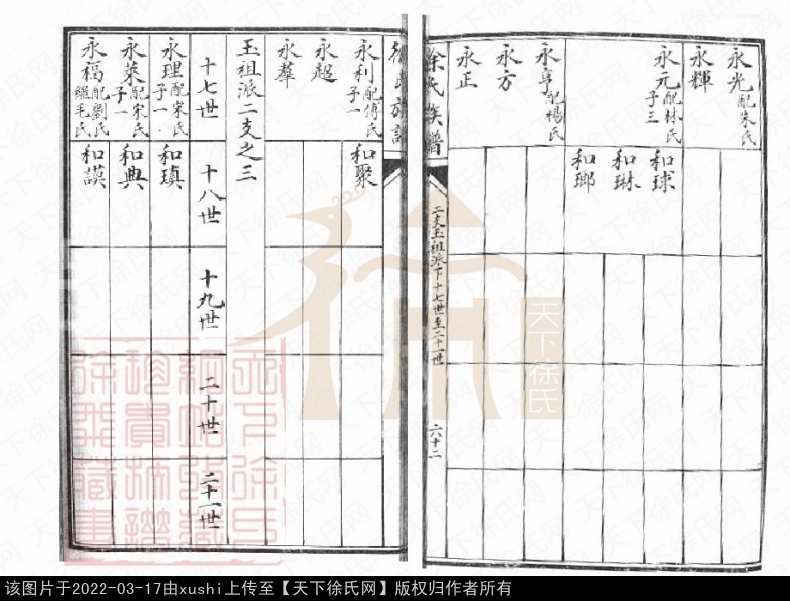 永光 配朱氏
永輝
永元 配林氏 子三
和球
和琳
和瑯
永亨 配楊氏
永方
永正
徐氏族譜
二支玉祖派下十七世至二十一世
六十二
永利 配傅氏 子一
和聚
永超
永羣
玉祖派二支之三
十七世
十八世
十九世
二十世
二十一世
永理 配宋氏 子一
和瑱
永萊 配宋氏 子一
和典
永福 配劉氏 繼毛氏
和謨
天下徐氏
天下徐氏网
该图片于2022-03-17由xushi上传至【天下徐氏网】版权归作者所有